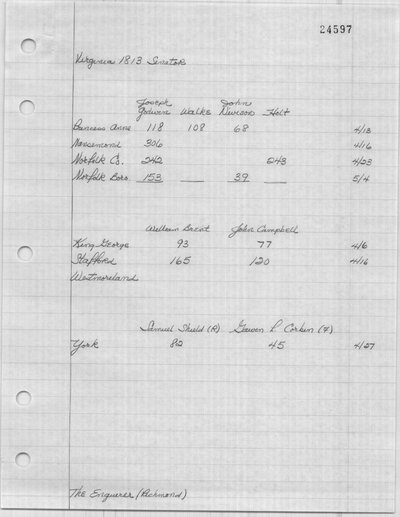 24597
Virginia 1813 Senator
Joseph Godwin Walke John Newsom Holt
Princess Anne 118 108 68 4/13
Nansemond 306 4/16
Norfolk Co. 242 243 4/23
Norfolk Boro. 153 39 5/4
William Brent John Campbell
King George 93 77 4/6
Stafford 165 120 4/16
Westmoreland
Samuel Shield (R) Gawen L Corbin (F)
York 82 45 4/27
The Enquirer (Richmond)